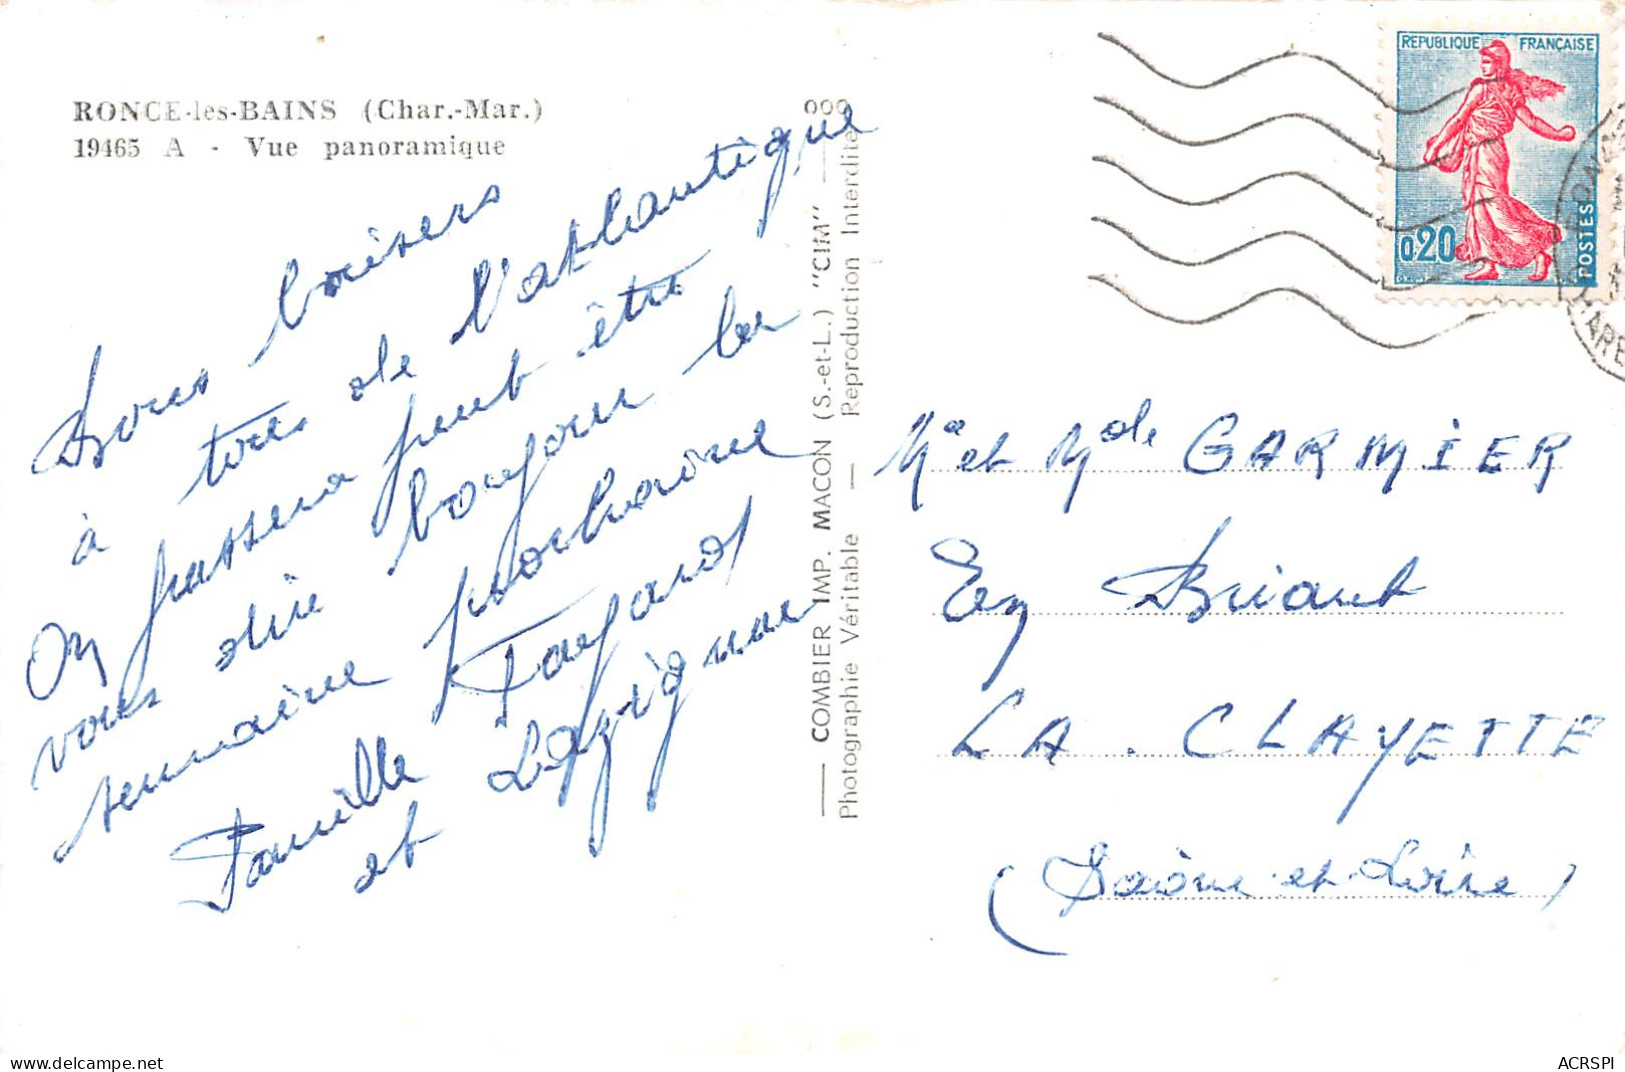 RONCE-les-BAINS (Char.-Mar.)
19465 A - Vue panoramique
Bons baisers
à tous de l'atlantique
On passera peut être
vous dire bonjour la
semaine prochaine
Famille Fayard
et
COMBIER IMP. MACON (S.-et-L.) "CIM"
Photographie Véritable — Reproduction Interdite
REPUBLIQUE FRANÇAISE
0,20
POSTES
Mr et Mde GARMIER
En Briant
LA . CLAYETTE
(Saône-et-Loire)
delcampe.net
ACRSPI